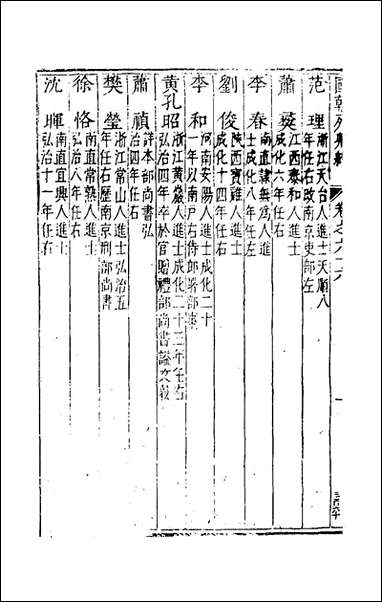 國朝列卿紀 卷之六十六
范理 浙江天台人進士天順八
年任右改南京吏部左
蕭彝 江西泰和人進士
成化六年任右
李春 南直隸 人進
士成化八年任左
劉俊 陝西寶雞人進士
成化十四年任右
李和 河南安陽人進士成化二十
一年以南戶右侍郎署部事
黃孔昭 浙江黃巖人進士成化二十三年任右
弘治四年卒於官贈禮部尚書謚文毅
蕭禎 詳本部尚書弘
治四年任右
樊瑩 浙江常山人進士弘治五
年任右歷南京刑部尚書
徐恪 南直常熟人進士
弘治八年任右
沈暉 南直宜興人進士
弘治十一年任右